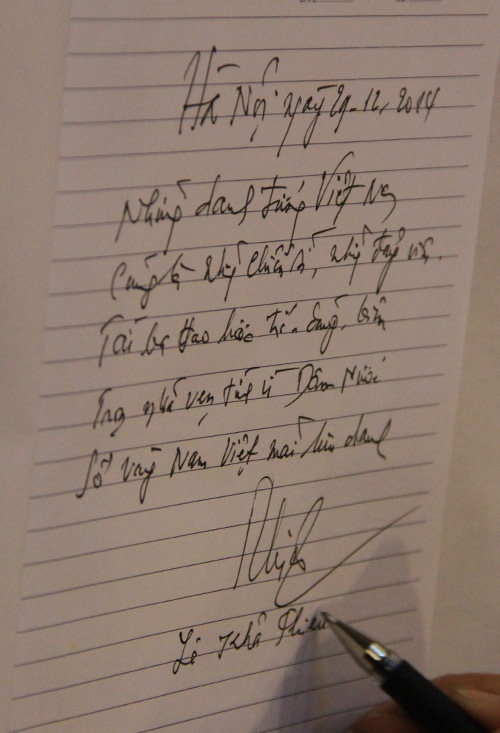 Hà Nội ngày 29-12-2014
Những danh tướng Việt Nam
Cũng là những chiến sĩ, những
Tài ba thao lược trí dũng
Trọn nghĩa vẹn vì Dân Nước
Sử vàng Nam Việt mãi lưu danh
Lê Khả Phiêu